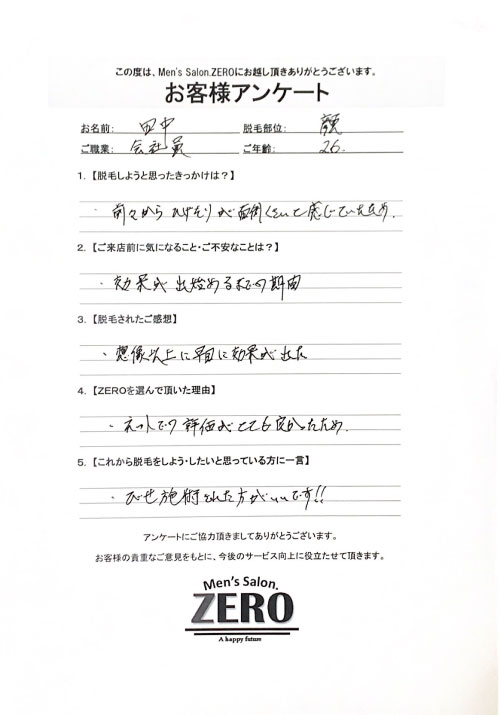 この度は、Men's Salon.ZEROにお越し頂きありがとうございます。
お客様アンケート
お名前: 田中 脱毛部位: 顔
ご職業: 会社員 ご年齢: 26.
1.【脱毛しようと思ったきっかけは?】
・前々からひげそりが面倒くさいと感じていたため.
2.【ご来店前に気になること・ご不安なことは?】
・効果が出始めるまでの期間
3.【脱毛されたご感想】
・想像以上に早目に効果が出た
4.【ZEROを選んで頂いた理由】
・ネットでの評価がとても良かったため.
5.【これから脱毛をしよう・したいと思っている方に一言】
・ぜひ施術された方がいいです!!
アンケートにご協力頂きましてありがとうございます。
お客様の貴重なご意見をもとに、今後のサービス向上に役立たせて頂きます。
Men's Salon.
ZERO
A happy future